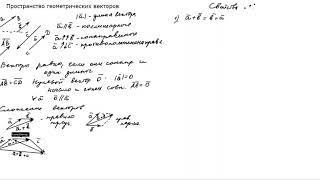 Пространство геометрических векторов
|ā| - длина вектора
ā ∥ b̄ - коллинеарные
ā ↑↑ b̄ - сонаправлены
ā ↑↓ b̄ - противоположнонаправ
Векторы равны, если они сонапр
и одна длина
AB = CD Нулевой вектор 0̄ |0̄| = 0
начало и конец совп AA = 0̄
∀ ā 0̄ ∥ ā
Сложение векторов
правило
Свойства "+"
1) ā + b̄ = b̄ + ā